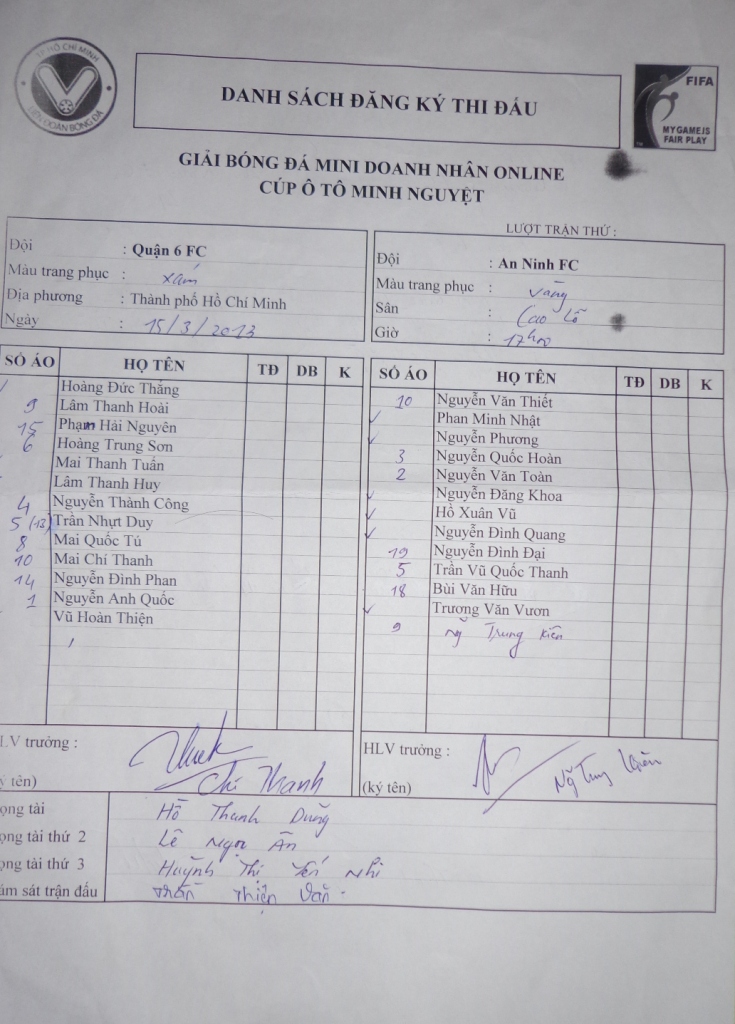 TP HỒ CHÍ MINH
LIÊN ĐOÀN BÓNG ĐÁ
DANH SÁCH ĐĂNG KÝ THI ĐẤU
FIFA
MY GAME IS
FAIR PLAY
GIẢI BÓNG ĐÁ MINI DOANH NHÂN ONLINE
CÚP Ô TÔ MINH NGUYỆT
LƯỢT TRẬN THỨ :
Đội : Quận 6 FC
Màu trang phục : xám
Địa phương : Thành phố Hồ Chí Minh
Ngày : 15/3/2013
Đội : An Ninh FC
Màu trang phục : vàng
Sân : Cao Lỗ
Giờ : 17h00
SỐ ÁO HỌ TÊN TĐ DB K
Hoàng Đức Thắng
9 Lâm Thanh Hoài
15 Phạm Hải Nguyên
6 Hoàng Trung Sơn
Mai Thanh Tuấn
Lâm Thanh Huy
4 Nguyễn Thành Công
5 (12) Trần Nhựt Duy
8 Mai Quốc Tú
10 Mai Chí Thanh
14 Nguyễn Đình Phan
1 Nguyễn Anh Quốc
Vũ Hoàn Thiện
SỐ ÁO HỌ TÊN TĐ DB K
10 Nguyễn Văn Thiết
Phan Minh Nhật
Nguyễn Phương
3 Nguyễn Quốc Hoàn
2 Nguyễn Văn Toàn
Nguyễn Đăng Khoa
Hồ Xuân Vũ
Nguyễn Đình Quang
19 Nguyễn Đình Đại
5 Trần Vũ Quốc Thanh
18 Bùi Văn Hữu
Trương Văn Vươn
9 Ng Trung Kiên
HLV trưởng :
Chí Thanh
ký tên)
HLV trưởng :
(ký tên)
Ng Trung Kiên
ọng tài Hồ Thanh Dưỡng
ọng tài thứ 2 Lê Ngọc Ân
ọng tài thứ 3 Huỳnh Thị Yến Nhi
ám sát trận đấu Trần Thiện Văn